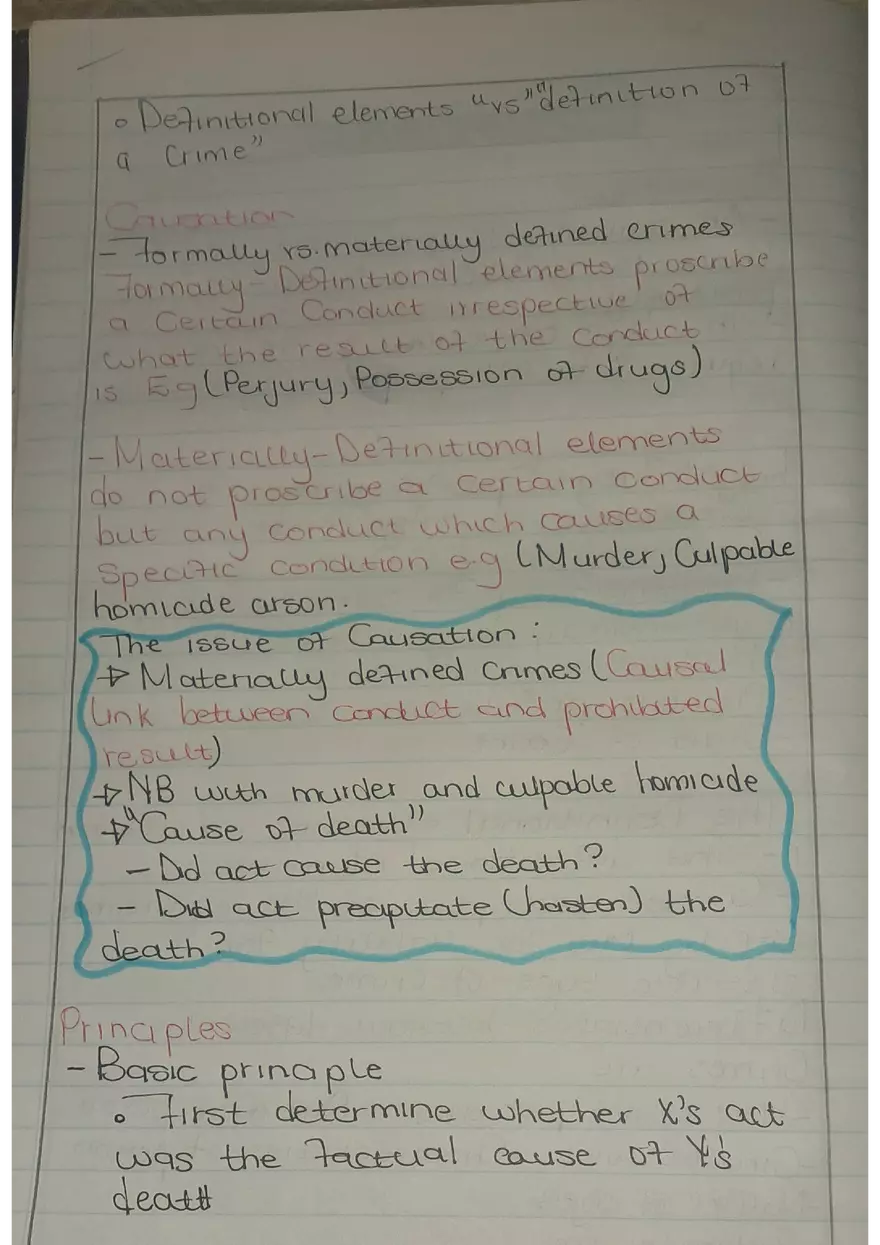 o Definitional elements "vs" "definition of
a Crime"
Causation
- Formally vs. materially defined crimes
Formally- Definitional elements proscribe
a Certain Conduct irrespective of
what the result of the Conduct
is Eg (Perjury, Possession of drugs)
- Materially-Definitional elements
do not proscribe a certain conduct
but any conduct which causes a
Specific condition e.g (Murder, Culpable
homicide arson.
The issue of Causation :
→ Materially defined crimes (Causal
link between conduct and prohibited
result)
→ NB with murder and culpable homicide
→ "Cause of death"
- Did act cause the death?
- Did act precipitate (hasten) the
death?
Principles
- Basic principle
o First determine whether X's act
was the factual cause of Y's
death